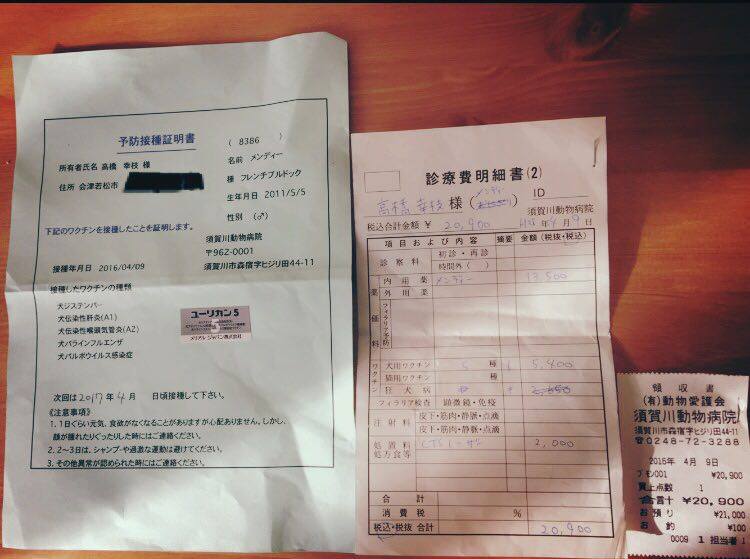 予防接種証明書
( 8386 )
所有者氏名 高橋 幸枝 様
名前 メンディー
住所 会津若松市
種 フレンチブルドック
生年月日 2011/5/5
性別 (♂)
下記のワクチンを接種したことを証明します。
須賀川動物病院
〒962-0001
接種年月日 2016/04/09
須賀川市森宿字ヒジリ田44-11
接種したワクチンの種類
犬ジステンパー
犬伝染性肝炎(A1)
犬伝染性喉頭気管炎(A2)
犬パラインフルエンザ
犬パルボウイルス感染症
ユーリカン5
メリアル ジャパン株式会社
次回は 2017年 4月 日頃接種して下さい。
《注意事項》
1. 1日くらい元気、食欲がなくなることがありますが心配ありません。しかし、
顔が腫れたりぐったりした時にはご連絡ください。
2. 2~3日は、シャンプーや過激な運動は避けてください。
3. その他異常が認められた時にはご連絡ください。
診療費明細書(2)
高橋 幸枝 様 (メンディー) ID
須賀川動物病院
税込合計金額 ¥ 20,900
4月 9日
項目および内容 摘要 金額(税抜・税込)
診察料 初診・再診
時間外( )
薬価料 内用薬 メンディー 13,500
外用薬
フィラリア予防
ワクチン 犬用ワクチン 種 5,400
猫用ワクチン 種
狂犬病
フィラリア検査 顕微鏡・免疫
注射料 皮下・筋肉・静脈・点滴
皮下・筋肉・静脈・点滴
処置料 2,000
処方食等
合計
消費税 %
税込・税抜 合計 20,900
領収書
(有)動物愛護会
須賀川動物病院
須賀川市森宿字ヒジリ田44-11
☎0248-72-3288
4月 9日
ブモン001 ¥20,900
買上点数 1
合計 ¥20,900
お預り ¥21,000
お釣 ¥100
0009 1 担当者1